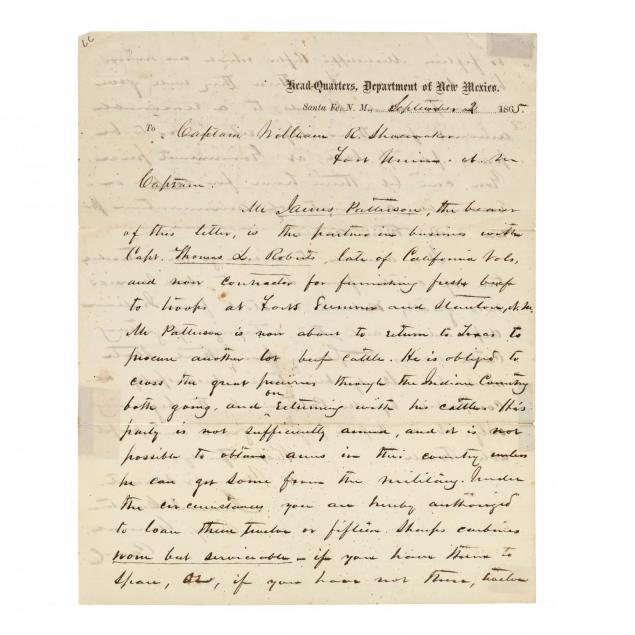 Head-Quarters, Department of New Mexico.
Santa Fe, N. M., September 2 1865.
To Captain William R. Shoemaker
Fort Union. N. M.
Captain:
Mr James Patterson, the bearer
of this letter, is the partner in business with
Capt. Thomas L. Roberts, late of California Vols,
and now contractor for furnishing fresh beef
to troops at Forts Sumner and Stanton, N. M.
Mr Patterson is now about to return to Texas to
procure another lot beef cattle. He is obliged to
cross the great prairies through the Indian Country
both going, and on returning with his cattle. His
party is not sufficiently armed, and it is not
possible to obtain arms in this country unless
he can get some from the military. Under
the circumstances you are hereby authorized
to loan them twelve or fifteen Sharps carbines
worn but serviceable - if you have them to
spare, or, if you have not them, twelve